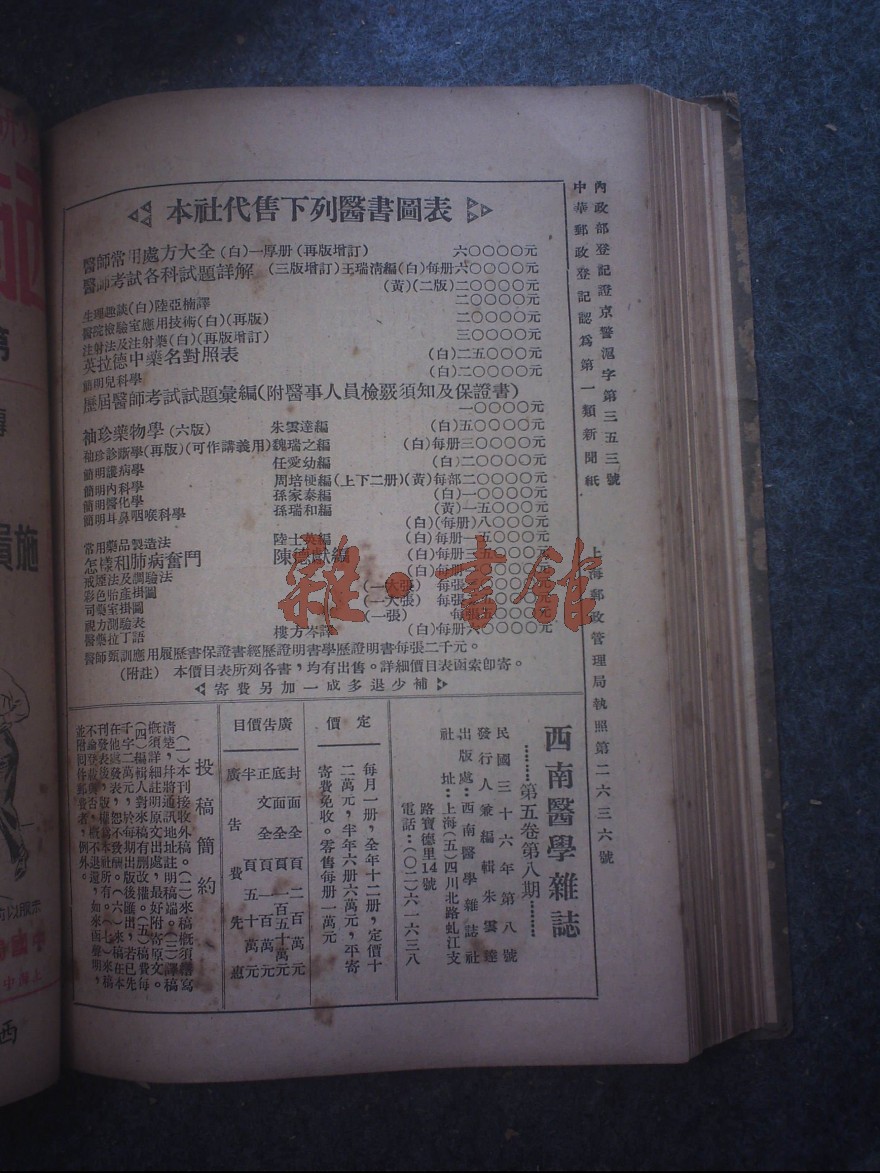 內政部登記證京警滬字第三五三號
中華郵政登記認為第一類新聞紙
上海郵政管理局執照第二六三六號
本社代售下列醫書圖表
醫師常用處方大全(白)一厚册(再版增訂) 六〇〇〇〇元
醫師考試各科試題詳解(三版增訂)王瑞清編(白)每册六〇〇〇〇元
(黃)(二版)二〇〇〇〇元
生理趣談(白)陸亞楠譯 二〇〇〇〇元
醫院檢驗室應用技術(白)(再版) 二〇〇〇〇元
注射法及注射藥(白)(再版增訂) 三〇〇〇〇元
英拉德中藥名對照表 (白)二五〇〇〇元
簡明兒科學 (白)二〇〇〇〇元
歷屆醫師考試試題彙編(附醫事人員檢覈須知及保證書)
一〇〇〇〇元
袖珍藥物學(六版) 朱雲達編 (白)五〇〇〇〇元
袖珍診斷學(再版)(可作講義用)魏瑞之編 (白)每册三〇〇〇〇元
簡明護病學 任愛幼編 (白)二〇〇〇〇元
簡明內科學 周培梗編(上下二册)(黃)每部二〇〇〇〇元
簡明醫化學 孫家泰編 (白)一〇〇〇〇元
簡明耳鼻咽喉科學 孫瑞和編 (黃)一五〇〇〇元
(白)(每册)八〇〇〇元
常用藥品製造法 陸士英編 (白)每册一五〇〇〇元
怎樣和肺病奮鬥 陳德獻編 (白)每册三五〇〇〇元
戒煙法及調驗法 (白)每册
彩色胎產掛圖 (一大張) 每張
司藥室掛圖 (一大張) 每張
視力測驗表 (一張) 每張
醫藥拉丁語 樓方岑譯 (白)每册六〇〇〇〇元
醫師甄訓應用履歷書保證書經歷證明書學歷證明書每張二千元。
(附註) 本價目表所列各書,均有出售。詳細價目表函索卽寄。
寄費另加一成多退少補
雜·書館
西南醫學雜誌
……第五卷第八期……
民國三十六年第八號
發行人兼編輯朱雲達
出版處:西南醫學雜誌社
社址:上海(五)四川北路虬江支
路寶德里14號
電話:(〇二)六一六三八
定價
每月一册,全年十二册,定價十
二萬元,半年六册六萬元,平寄
寄費免收。零售每册一萬元
廣告價目
封面全頁二百萬元
底面全頁一百五十萬元
正文全頁一百萬元
半頁五十萬元
廣告費先惠
投稿簡約
(一)本刊接收外稿。(二)來稿概須繕寫
清楚,幷將通訊地址註明稿端。(三)譯稿
概須詳細註明原文出處,最好附寄原文。
(四)編輯人對來稿有刪改權。(五)稿費每
千字二萬元,於每期出版後匯出,若已先
在他處發表,恕不致酬。(六)來稿在本
刊發表後,版權爲本社所有。(七)來稿
不論登載與否,槪不退還,如來函聲明,
並附回件郵費者,例外。